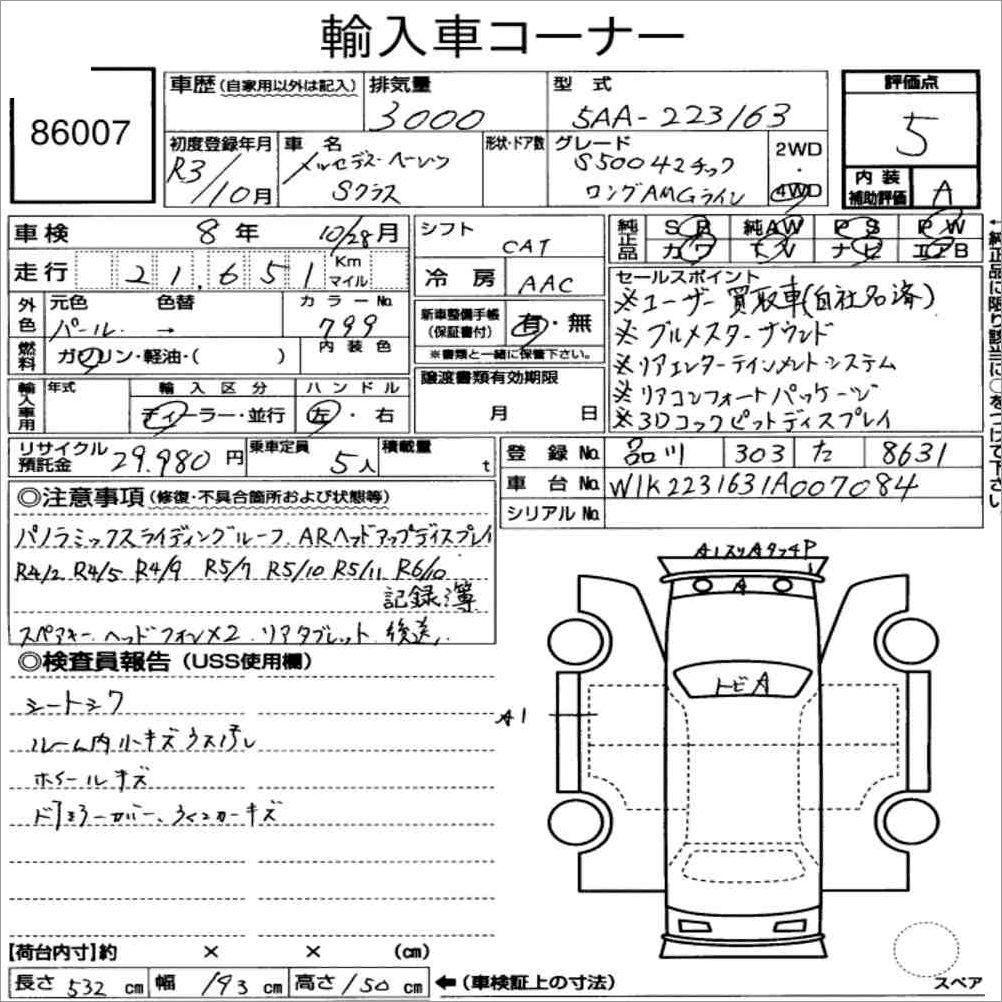 輸入車コーナー
86007
車歴 (自家用以外は記入)
排気量
3000
型式
5AA-223163
評価点
5
初度登録年月
R3/10月
車名
メルセデス・ベンツ
Sクラス
形状・ドア数
グレード
S500 4マチック
ロングAMGライン
2WD
4WD
内装
補助評価
A
車検 8年 10/28月
走行 21,651 Km マイル
シフト
CAT
冷房 AAC
純正品
SR 純AW PS PW
カワ TV ナビ エアB
←純正品に限り該当に○をつけて下さい
外色 元色 色替 カラーNo.
パール → 799
燃料 ガソリン・軽油・( )
内装色
新車整備手帳
(保証書付)
有・無
※書類と一緒に保管下さい。
セールスポイント
※ユーザー買取車(自社名済)
※ブルメスターサウンド
※リアエンターテインメントシステム
※リアコンフォートパッケージ
※3Dコックピットディスプレイ
輸入車用 年式 輸入区分 ハンドル
ディーラー・並行 左・右
譲渡書類有効期限
月 日
リサイクル
預託金
29.980円
乗車定員
5人
積載量
t
登録No. 品川 303 た 8631
車台No. W1K2231631A007084
シリアルNo.
◎注意事項 (修復・不具合箇所および状態等)
パノラミックスライディングルーフ ARヘッドアップディスプレイ
R4/2 R4/5 R4/9 R5/7 R5/10 R5/11 R6/10
記録簿
スペアキー、ヘッドフォン×2、リアタブレット 後送
◎検査員報告 (USS使用欄)
シートシワ
ルーム内小キズ ウス汚レ
ホイールキズ
ドアミラーカバー、ウィンカーキズ
A1スリAタッチP
A
トビA
A1
【荷台内寸】約 × × (cm)
長さ 532 cm 幅 193 cm 高さ 150 cm ←(車検証上の寸法)
スペア